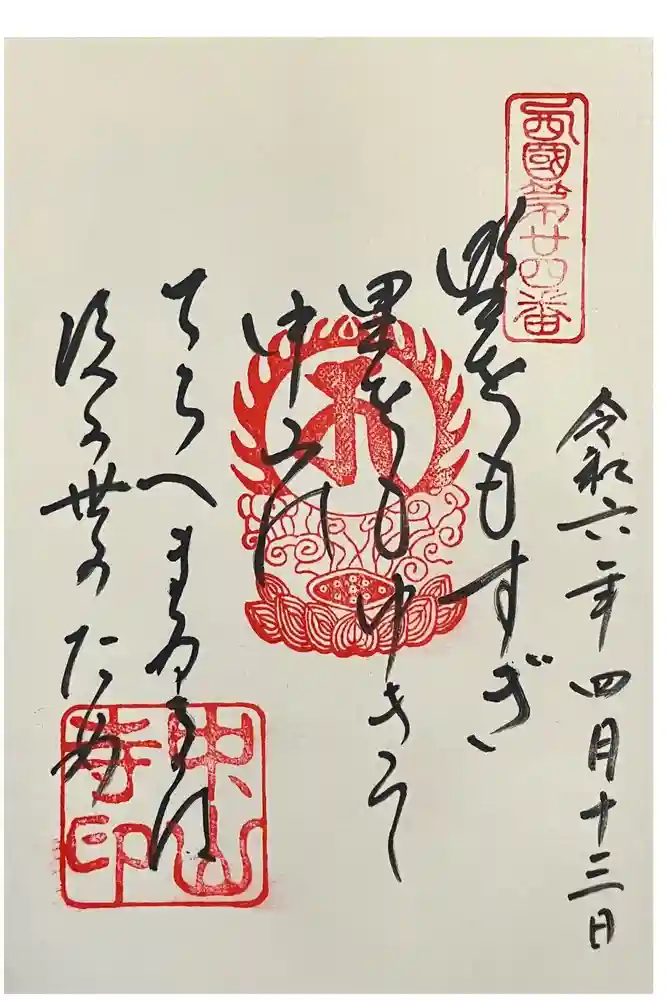 西國第廿四番
令和六年四月十三日
野をもすぎ
里をもゆきて
中山の
てらへまゐるは
後の世のため
中山寺印